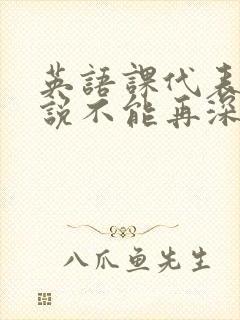 英語課代表
說不能再深
八爪鱼先生